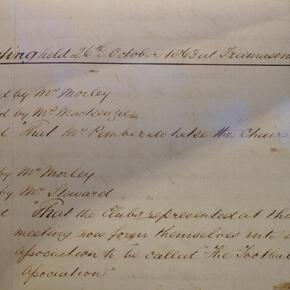 ting held 26th October 1863 at Freemason
ed by Mr Morley
ed by Mr Mackenzie
d "That Mr Pember do take the Chair
by Mr Morley
by Mr Steward
d "That the Clubs represented at this
meeting now form themselves into a
Association to be called "The Football
Association"